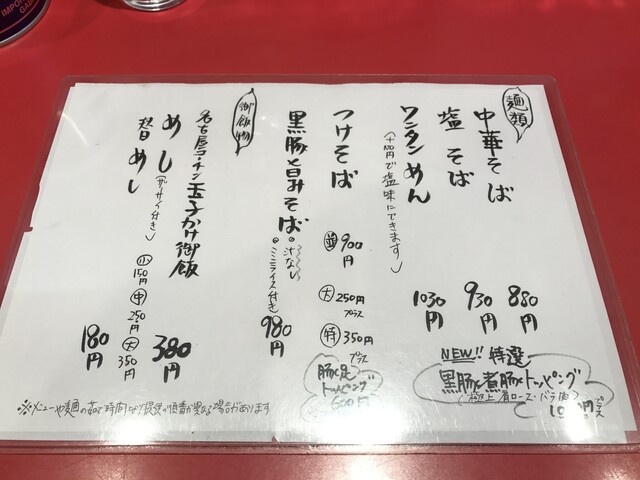 麺類
中華そば 880円
塩そば 930円
ワンタンめん 1030円
(+100円で塩味にできます)
つけそば
並 900円
大 250円プラス
特 350円プラス
黒豚旨みそば 980円
汁なし
ミニライス付き
御飯物
名古屋コーチン玉子かけ御飯 380円
めし(ザーサイ付き)
小 150円
中 250円
大 350円
替めし 180円
NEW!! 特選
黒豚煮豚トッピング
(極上肩ロース・バラ肉)
豚足
トッピング
※メニューや麺の茹で時間により提供の順番が異なる場合があります
IMPO